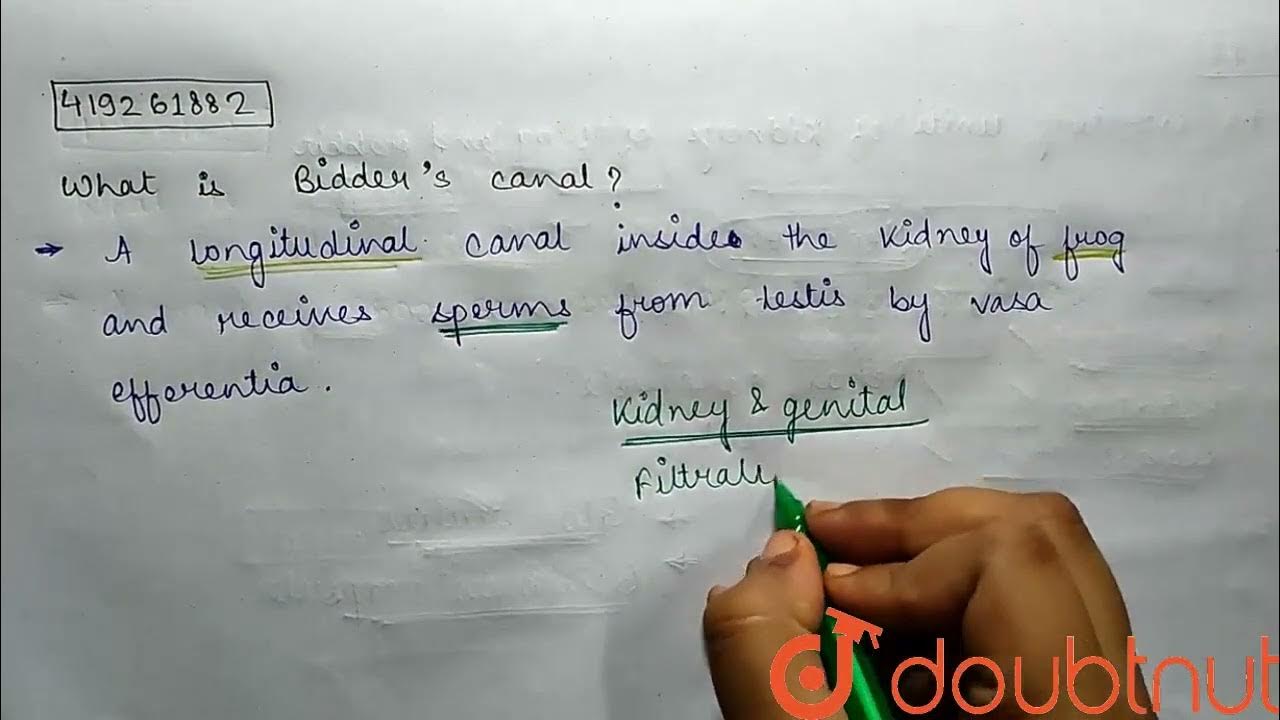 419261882
What is Bidder's canal?
→ A longitudinal canal inside the kidney of frog
and receives sperms from testis by vasa
efferentia.
Kidney & genital
doubtnut